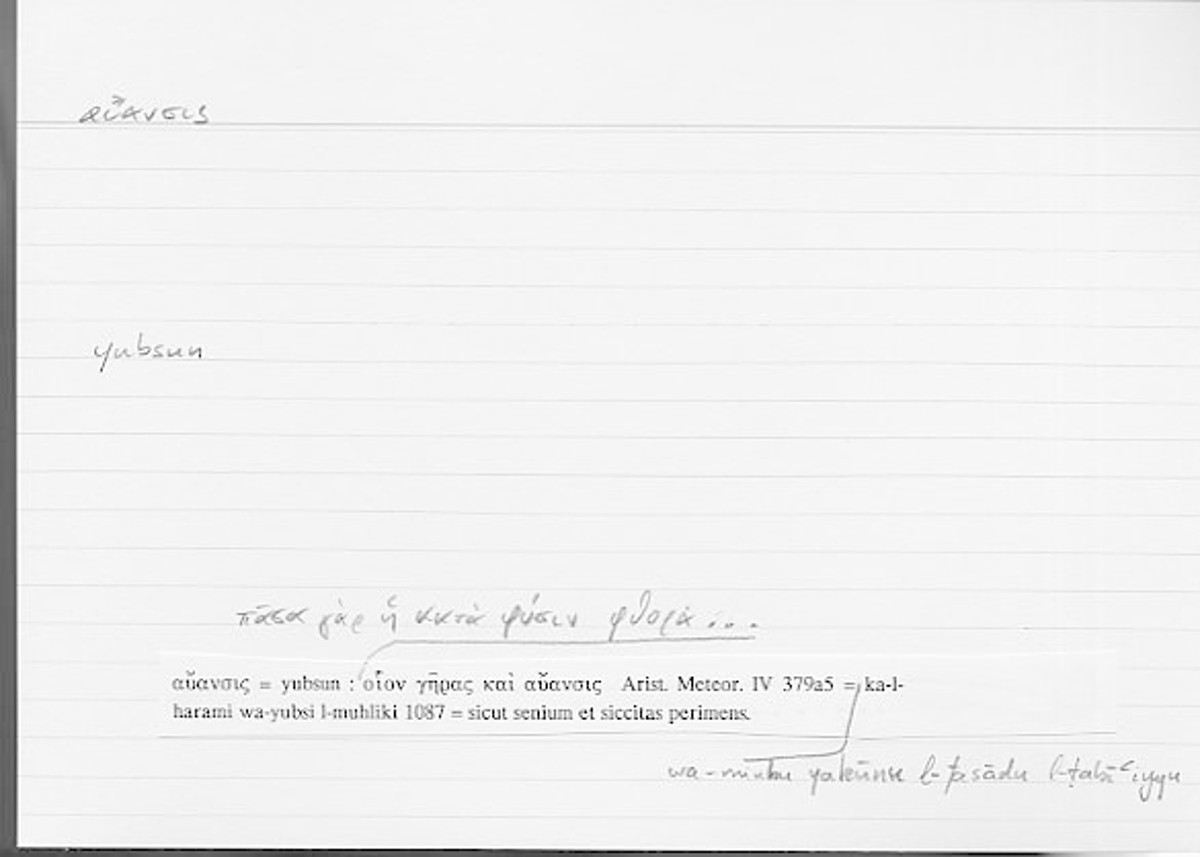 αὔανσις
yubsun
πᾶσα γὰρ ἡ κατὰ φύσιν φθορὰ ...
αὔανσις = yubsun : οἷον γῆρας καὶ αὔανσις Arist. Meteor. IV 379a5 = ka-l-
harami wa-yubsi l-muhliki 1087 = sicut senium et siccitas perimens.
wa-minhu yakūnu l-fasādu l-ṭabīʿiyyu